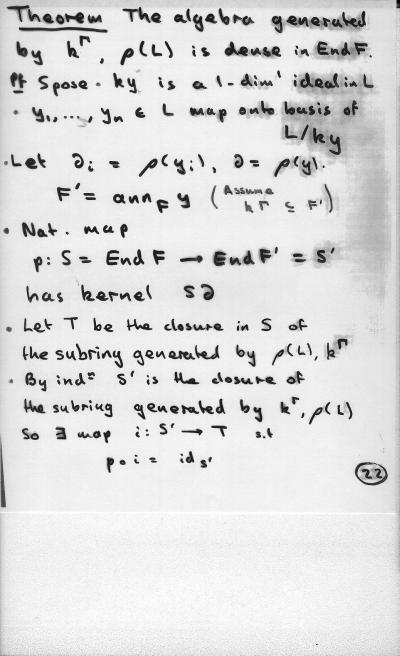 Theorem The algebra generated
by k^Γ, ρ(L) is dense in End F.
Pf Spose · ky is a 1-dim' ideal in L
· y₁,..., yₙ ∈ L map onto basis of
L/ky
· Let ∂ᵢ = ρ(yᵢ), ∂ = ρ(y).
F' = ann_F y (Assume
k^Γ ⊆ F')
· Nat. map
p: S = End F → End F' = S'
has kernel S∂
· Let T be the closure in S of
the subring generated by ρ(L), k^Γ
· By indⁿ S' is the closure of
the subring generated by k^Γ, ρ(L)
So ∃ map i: S' → T s.t
p∘i = id_S'
22